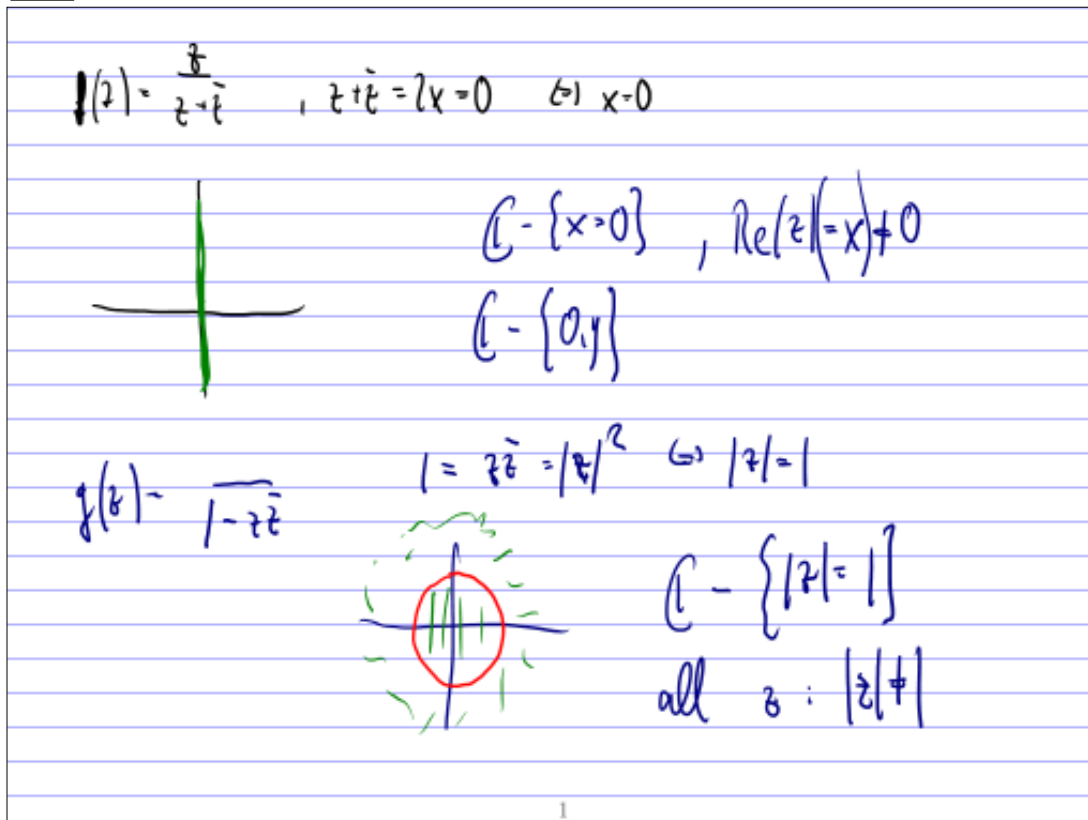 f(z) = z/(z+z̄) , z+z̄ = 2x = 0 ⇔ x=0
ℂ - {x=0} , Re(z)(=x)≠0
ℂ - {0,y}
1 = zz̄ = |z|² ⇔ |z|=1
g(z) = ‾/(1-zz̄)
ℂ - {|z|=1}
all z : |z|≠1
1